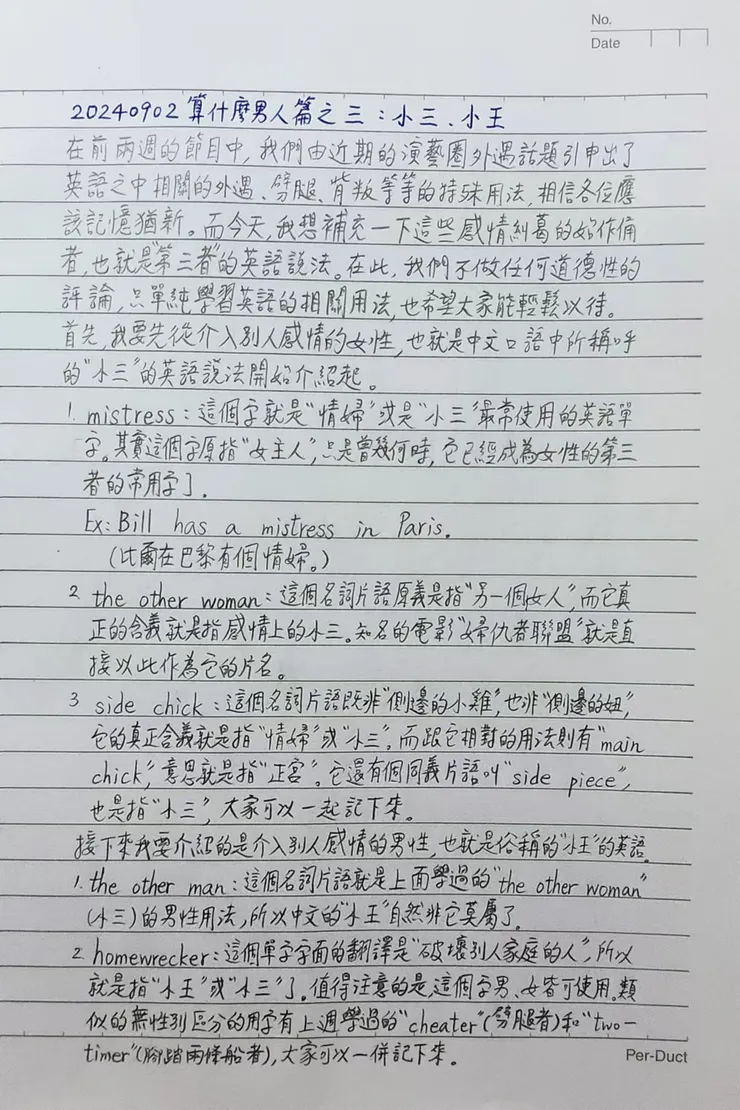 No.
Date
20240902 算什麼男人篇之三：小三、小王
在前兩週的節目中，我們由近期的演藝圈外遇話題引申出了
英語之中相關的外遇、劈腿、背叛等等的特殊用法，相信各位應
該記憶猶新。而今天，我想補充一下這些感情糾葛的始作俑
者，也就是"第三者"的英語說法。在此，我們不做任何道德性的
評論，只單純學習英語的相關用法，也希望大家能輕鬆以待。
首先，我要先從介入別人感情的女性，也就是中文口語中所稱呼
的"小三"的英語說法開始介紹起。
1. mistress：這個字就是"情婦"或是"小三"最常使用的英語單
字。其實這個字原指"女主人"，只是曾幾何時，它已經成為女性的第三
者的常用字了.
Ex: Bill has a mistress in Paris.
(比爾在巴黎有個情婦。)
2 the other woman：這個名詞片語原義是指"另一個女人"，而它真
正的含義就是指感情上的小三。知名的電影"婦仇者聯盟"就是直
接以此作為它的片名。
3 side chick：這個名詞片語既非"側邊的小雞"，也非"側邊的妞"，
它的真正含義就是指"情婦"或"小三"。而跟它相對的用法則有"main
chick"，意思就是指"正宮"。它還有個同義片語叫"side piece"，
也是指"小三"，大家可以一起記下來。
接下來我要介紹的是介入別人感情的男性，也就是俗稱的"小王"的英語。
1. the other man：這個名詞片語就是上面學過的"the other woman"
(小三)的男性用法，所以中文的"小王"自然非它莫屬了.
2 homewrecker：這個單字字面的翻譯是"破壞別人家庭的人"，所以
就是指"小王"或"小三"了。值得注意的是，這個字男、女皆可使用。類
似的無性別區分的用字有上週學過的"cheater"(劈腿者)和"two-
timer"(腳踏兩條船者)，大家可以一併記下來。
Per-Duct